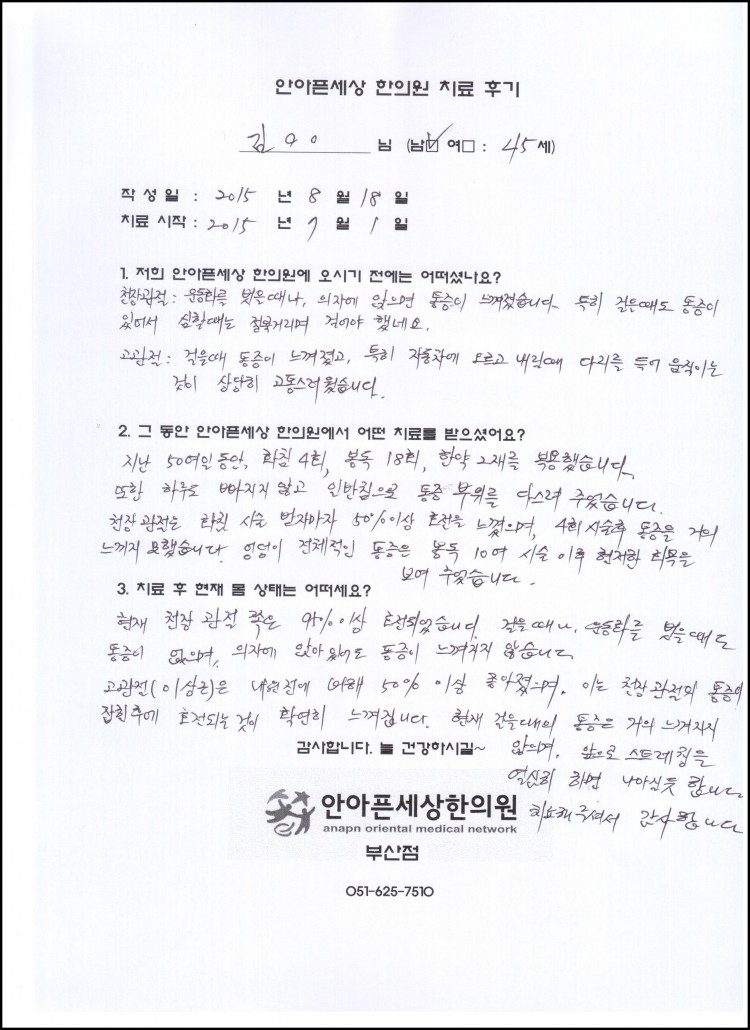 안아픈세상 한의원 치료 후기
김ㅇㅇ 님 (남☑ 여□ : 45세)
작 성 일 : 2015 년 8 월 18 일
치료 시작 : 2015 년 7 월 1 일
1. 저희 안아픈세상 한의원에 오시기 전에는 어떠셨나요?
천장관절 : 운동화를 벗을때나, 의자에 앉으면 통증이 느껴졌습니다. 특히 걸을때도 통증이
있어서 심할때는 절룩거리며 걸어야 했네요.
고관절 : 걸을때 통증이 느껴졌고, 특히 자동차에 오르고 내릴때 다리를 들어 움직이는
것이 상당히 고통스러웠습니다.
2. 그 동안 안아픈세상 한의원에서 어떤 치료를 받으셨어요?
지난 50여일 동안, 화침 4회, 봉독 18회, 한약 2재를 복용했습니다.
또한 하루도 빠지지 않고 일반침으로 통증 부위를 다스려 주었습니다.
천장관절은 화침 시술 받자마자 50%이상 호전을 느꼈으며, 4회 시술후 통증을 거의
느끼지 못했습니다. 엉덩이 전체적인 통증은 봉독 10여 시술 이후 현저한 회복을
보여 주었습니다.
3. 치료 후 현재 몸 상태는 어떠세요?
현재 천장 관절 쪽은 95%이상 호전되었습니다. 걸을때나, 운동화를 벗을때도
통증이 없으며, 의자에 앉아 있어도 통증이 느껴지지 않습니다.
고관절(이상근)은 내원전에 비해 50% 이상 좋아졌으며, 이는 천장관절의 통증이
잡힌 후에 호전되는 것이 확연히 느껴집니다. 현재 걸을때의 통증은 거의 느껴지지
않으며, 앞으로 스트레칭을
감사합니다. 늘 건강하시길~
열심히 하면 나아질듯 합니다.
치료해 주셔서 감사합니다
안아픈세상한의원
anapn oriental medical network
부산점
051-625-7510